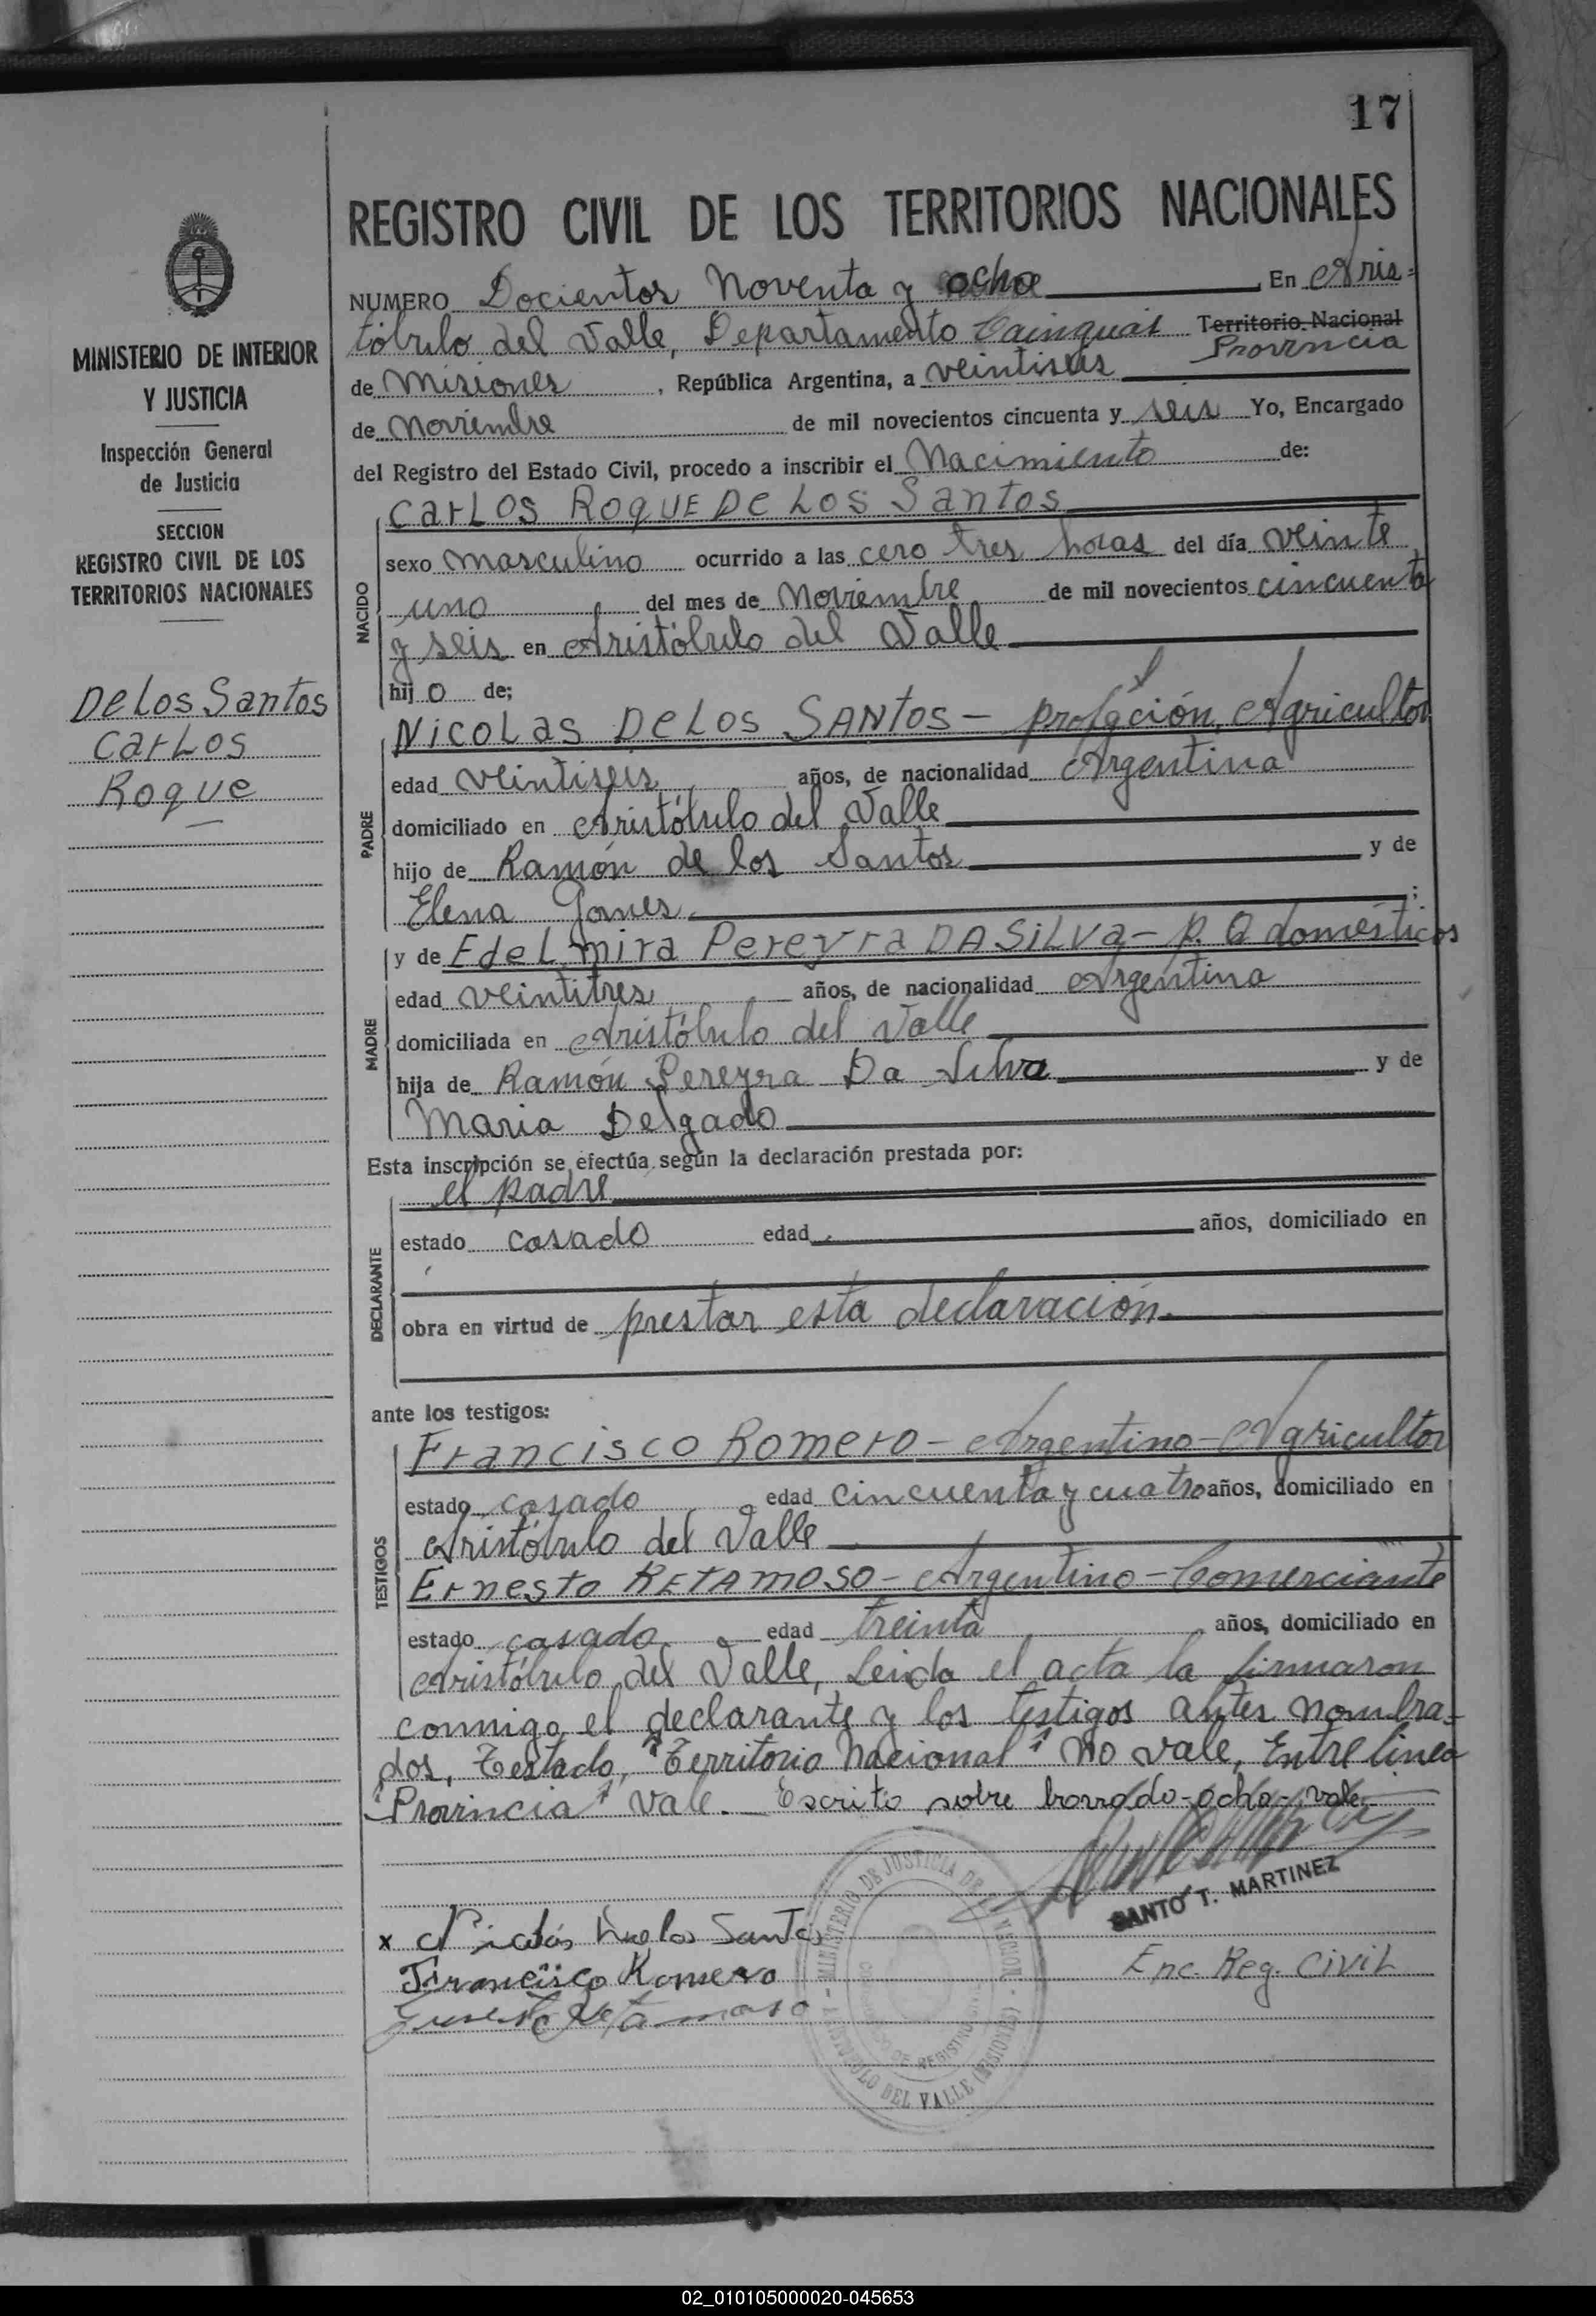 17
REGISTRO CIVIL DE LOS TERRITORIOS NACIONALES
NUMERO Docientos Noventa y ocho , En Aris=
tóbulo del Valle, Departamento Cainguás Territorio Nacional
Provincia
de Misiones , República Argentina, a veintiseis
de Noviembre de mil novecientos cincuenta y seis Yo, Encargado
del Registro del Estado Civil, procedo a inscribir el Nacimiento de:
NACIDO
Carlos Roque De Los Santos
sexo masculino ocurrido a las cero tres horas del día veinte
uno del mes de Noviembre de mil novecientos cincuenta
y seis en Aristóbulo del Valle
hijo de;
PADRE
Nicolas De Los Santos - profeción, Agricultor
edad veintiseis años, de nacionalidad Argentina
domiciliado en Aristóbulo del Valle
hijo de Ramón de los Santos y de
Elena Gomes. ;
MADRE
y de Edelmira Pereyra Da Silva - p. Q. domésticos
edad veintitres años, de nacionalidad Argentina
domiciliada en Aristóbulo del Valle
hija de Ramón Pereyra Da Silva y de
Maria Delgado
Esta inscripción se efectúa según la declaración prestada por:
DECLARANTE
el padre
estado casado edad años, domiciliado en
obra en virtud de prestar esta declaración.
ante los testigos:
TESTIGOS
Francisco Romero - Argentino - Agricultor
estado casado edad cincuenta y cuatro años, domiciliado en
Aristóbulo del Valle
Ernesto Retamoso - Argentino - Comerciante
estado casado edad treinta años, domiciliado en
Aristóbulo del Valle, Leida el acta la firmaron
conmigo el declarante y los testigos antes nombra-
dos, Testado, "Territorio Nacional" No vale, Entre linea
"Provincia" vale. Escrito sobre borrado-ocho-vale.
SANTO T. MARTINEZ
Enc. Reg. Civil
x Nicolás De los Santos
Francisco Romero
Ernesto Retamoso
MINISTERIO DE JUSTICIA DE LA NACION - ARISTOBULO DEL VALLE (MISIONES)
MINISTERIO DE INTERIOR
Y JUSTICIA
Inspección General
de Justicia
SECCION
REGISTRO CIVIL DE LOS
TERRITORIOS NACIONALES
De Los Santos
Carlos
Roque
02_010105000020-045653